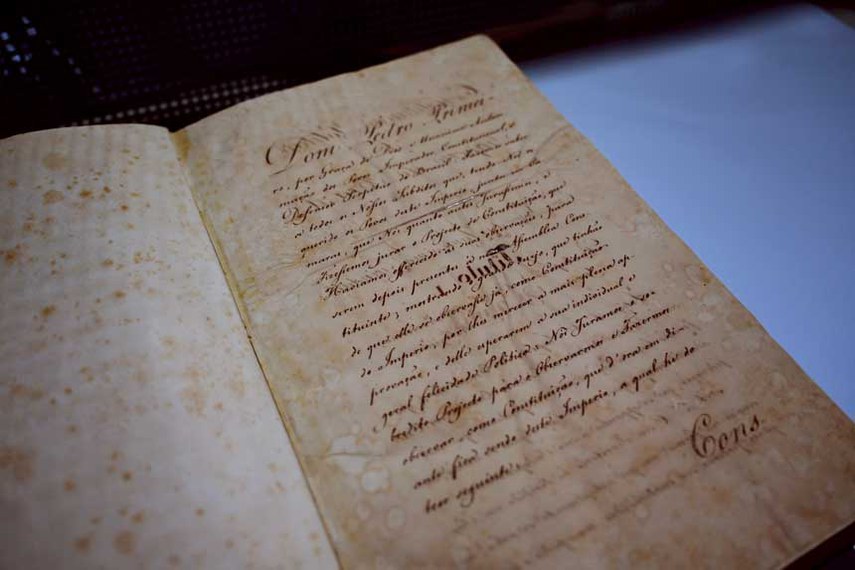 Dom Pedro Primei-
ro, por Graça de Deos e Unanime Acclamação dos Povos, Imperador Constitucional, e
Defensor Perpetuo do Brazil: Fazemos saber
a todos os Nossos Subditos, que tendo Nos re-
querido os Povos deste Imperio, juntos em Ca-
maras, que Nós quanto antes Jurassemos, e
Fizessemos jurar o Projecto de Constituição, que
Haviamos offerecido ás suas observações, para
serem depois presentes á nova Assemblea Cons-
tituinte; mostrando o desejo, que tinhão,
de que elle se observasse já como Constituição
do Imperio, por lhes merecer a mais plena ap-
provação, e delle esperarem a sua individual, e
geral felicidade Politica: Nós Juramos o so-
bredito Projecto para o Observarmos e Fazermos
observar, como Constituição, que d'ora em di-
ante fica sendo deste Imperio, a qual he do
teor seguinte:
Cons